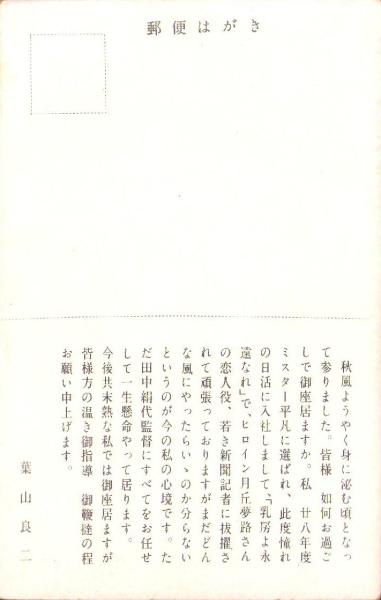 郵便はがき
秋風ようやく身に泌む頃となっ
て参りました。皆様 如何お過ご
しで御座居ますか。私 廿八年度
ミスター平凡に選ばれ、此度憧れ
の日活に入社しまして、「乳房よ永
遠なれ」で、ヒロイン月丘夢路さん
の恋人役、若き新聞記者に抜擢さ
れて頑張っておりますがまだどん
な風にやったらいゝのか分らない
というのが今の私の心境です。た
だ田中絹代監督にすべてをお任せ
して一生懸命やって居ります。
今後共未熟な私では御座居ますが
皆様方の温き御指導 御鞭撻の程
お願い申上げます。
葉山良二